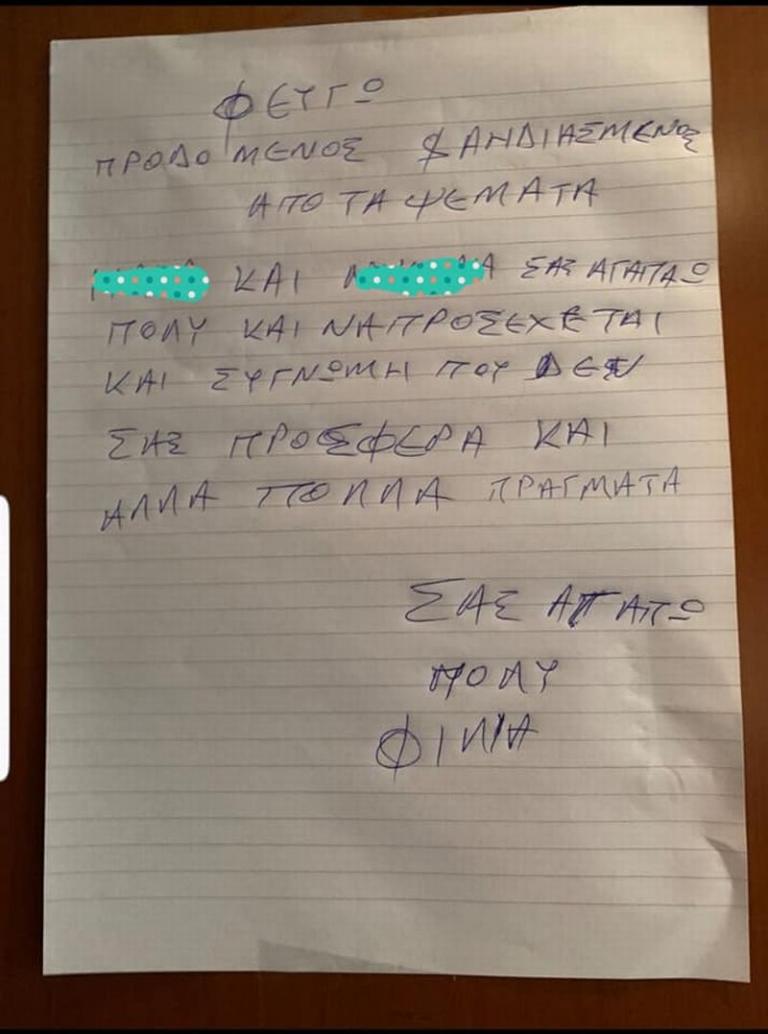 ΦΕΥΓΩ
ΠΡΟΔΟΜΕΝΟΣ ΞΑΝΔΙΑΣΜΕΝΟΣ
ΑΠΟ ΤΑ ΨΕΜΑΤΑ
ΚΑΙ ΣΑΣ ΑΓΑΠΑΩ
ΠΟΛΥ ΚΑΙ ΝΑ ΠΡΟΣΕΧΕΤΑΙ
ΚΑΙ ΣΥΓΝΩΜΗ ΠΟΥ ΔΕΝ
ΣΑΣ ΠΡΟΣΦΕΡΑ ΚΑΙ
ΑΛΛΑ ΠΟΛΛΑ ΠΡΑΓΜΑΤΑ
ΣΑΣ ΑΓΑΠΩ
ΠΟΛΥ
ΦΙΛΙΑ